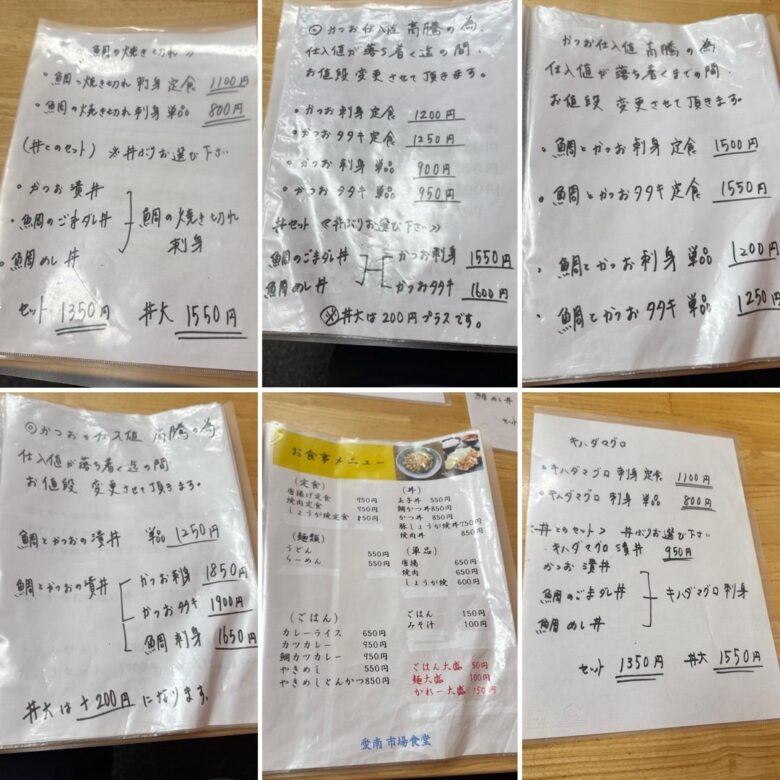 鯛の焼き切れ》
・鯛の焼き切れ 刺身 定食 1100円
・鯛の焼き切れ 刺身 単品 800円
(丼とのセット) ※丼ぶりお選び下さい
・かつお漬丼
・鯛のごまダレ丼
・鯛めし丼
鯛の焼き切れ
刺身
セット 1350円 丼大 1550円
◎かつお仕入値 高騰の為、
仕入値が落ち着く迄の間、
お値段 変更させて頂きます。
・かつお刺身 定食 1200円
・かつおタタキ定食 1250円
・かつお刺身 単品 900円
・かつおタタキ 単品 950円
丼セット 《丼ぶりお選び下さい》
鯛のごまダレ丼
鯛めし丼
かつお刺身 1550円
かつおタタキ 1600円
※丼大は200円プラスです。
かつお仕入値 高騰の為
仕入値が落ち着くまでの間、
お値段 変更させて頂きます。
・鯛とかつお刺身 定食 1500円
・鯛とかつおタタキ定食 1550円
・鯛とかつお刺身 単品 1200円
・鯛とかつおタタキ 単品 1250円
◎かつお 仕入値 高騰の為
仕入値が落ち着く迄の間
お値段 変更させて頂きます。
鯛とかつおの漬丼 単品 1250円
鯛とかつおの漬丼
かつお刺身 1850円
かつおタタキ 1900円
鯛刺身 1650円
丼大は+200円になります。
鯛めし丼
セット
お食事メニュー
(定食)
唐揚げ定食 950円
焼肉定食 950円
しょうが焼定食 850円
(麺類)
うどん 550円
らーめん 550円
(ごはん)
カレーライス 650円
カツカレー 950円
鯛カツカレー 950円
やきめし 550円
やきめしとんかつ 850円
(丼)
玉子丼 550円
鯛かつ丼 850円
かつ丼 850円
豚しょうが焼丼 750円
焼肉丼 850円
(単品)
唐揚 650円
焼肉 650円
しょうが焼 600円
ごはん 150円
みそ汁 100円
ごはん大盛 50円
麺大盛 100円
かれー大盛 150円
愛南市場食堂
キハダマグロ
・キハダマグロ 刺身 定食 1100円
・キハダマグロ 刺身 単品 800円
丼とのセット> 丼ぶりお選び下さい
・キハダマグロ 漬丼 950円
かつお 漬丼
鯛のごまダレ丼
鯛めし丼
キハダマグロ刺身
セット 1350円 丼大 1550円